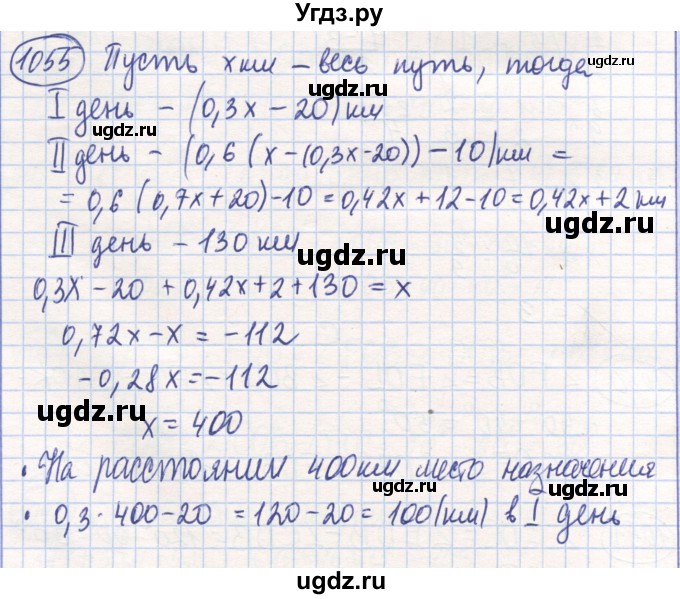 Угдз.ру
1055 Пусть x км – весь путь, тогда
I день – (0,3x – 20) км
II день – (0,6 (x – (0,3x-20)) – 10) км =
= 0,6 (0,7x + 20) - 10 = 0,42x + 12 - 10 = 0,42x + 2 км
III день – 130 км
0,3x – 20 + 0,42x + 2 + 130 = x
0,72x – x = – 112
- 0,28x = – 112
x = 400
• На расстоянии 400 км место назначения
• 0,3 · 400 – 20 = 120 – 20 = 100 (км) в I день
ugdz.ru
ugdz.ru
ugdz.ru
ugdz.ru
ugdz.ru
ugdz.ru
ugdz.ru
ugdz.ru
ugdz.ru
ugdz.ru
ugdz.ru
ugdz.ru
ugdz.ru
ugdz.ru